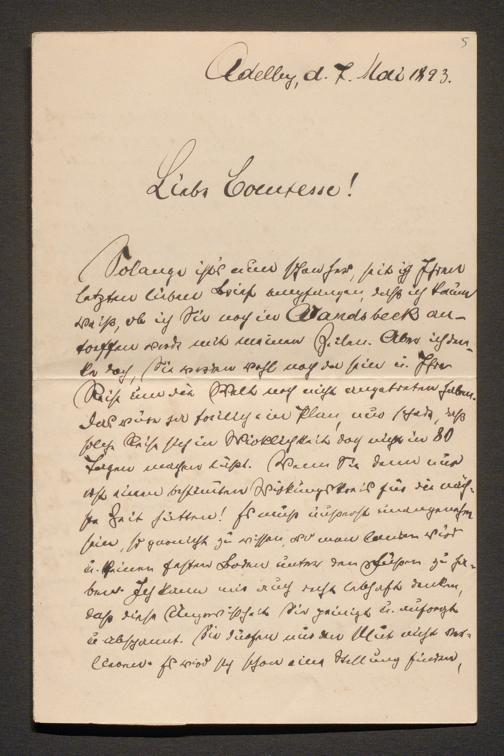 5
Adelby, d. 7. Mai 1893.
Liebe Comtesse!
Solange ist's nun schon her, seit ich Ihren
letzten lieben Brief empfangen, daß ich kaum
weiß, ob ich Sie noch in Wandsbeck an-
treffen werde mit meinen Zeilen. Aber ich den-
ke doch, Sie werden wohl noch da sein u. Ihre
Reise um die Welt noch nicht angetreten haben.
Das wäre ja freilich ein Plan, nur schade, daß
solche Reise sich in Wirklichkeit doch nicht in 80
Tagen machen läßt. Wenn Sie denn nur
erst einen bestimmten Wirkungskreis für die näch-
ste Zeit hätten! Es muß äußerst unangenehm
sein, so garnicht zu wissen, wo man landen wird
u. keinen festen Boden unter den Füßen zu ha-
ben. Ich kann mir auch recht lebhaft denken,
daß diese Ungewißheit Sie peinigt u. aufregt
u. abspannt. Sie dürfen nur den Mut nicht ver-
lieren. Es wird sich schon eine Stellung finden,